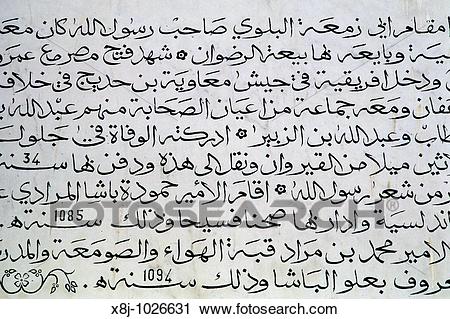 مقام ابي زمعة البلوي صاحب رسول الله كان معه
وبايعه لها بيعة الرضوان شهد فتح مصر مع عمرو
ودخل افريقية في جيش معاوية بن حديج في خلاف
عفان ومعه جماعة من اعيان الصحابة منهم عبد الله ب
طاب وعبد الله بن الزبير ادركته الوفاة في جلول
ثين ميلا من القيروان ونقل الى هذه ودفن لها سنة 34
من شعر رسول الله اقام الامير حمودة باشا المرادي
وادار لها صحنا فسيحا وذلك سنة 1085 هـ
لامير محمد بن مراد قبة الهواء والصومعة والمد
عروف بعلو الباشا وذلك سنة 1094 هـ.
© Fotosearch
fotosearch.com
x8j-1026631 www.fotosearch.com